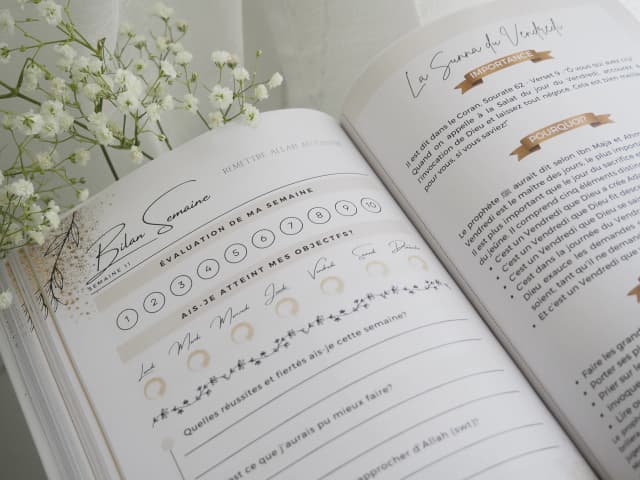 REMETTRE ALLAH AU CENTRE
Bilan Semaine
SEMAINE 11
ÉVALUATION DE MA SEMAINE
1 2 3 4 5 6 7 8 9 10
AIS-JE ATTEINT MES OBJECTIFS?
Lundi Mardi Mercredi Jeudi Vendredi Samedi Dimanche
Quelles réussites et fiertés ais-je cette semaine?
est ce que j'aurais pu mieux faire?
approcher d'Allah (swt)?
La Sunna du Vendredi
IMPORTANCE
Il est dit dans le Coran, Sourate 62 - Verset 9 - "Ô vous qui avez cru
Quand on appelle à la Salat du jour du Vendredi, accourez à
l'invocation de Dieu et laissez tout négoce. Cela est bien
pour vous, si vous saviez!"
POURQUOI?
Le prophète ﷺ aurait dit selon Ibn Maja et
Vendredi est le maître des jours, le plus
Il est plus important que le jour du sacrifice
du jeûne. Il comprend cinq éléments
• C'est un Vendredi que Dieu a créé
• C'est un Vendredi que Dieu le fit
• C'est un Vendredi que Dieu
• C'est dans la journée du
Dieu exauce les demandes
soient, tant qu'il ne
• Et c'est un Vendredi que
• Faire les
• Porter ses
• Prier sur le
• Invoquer
• Lire